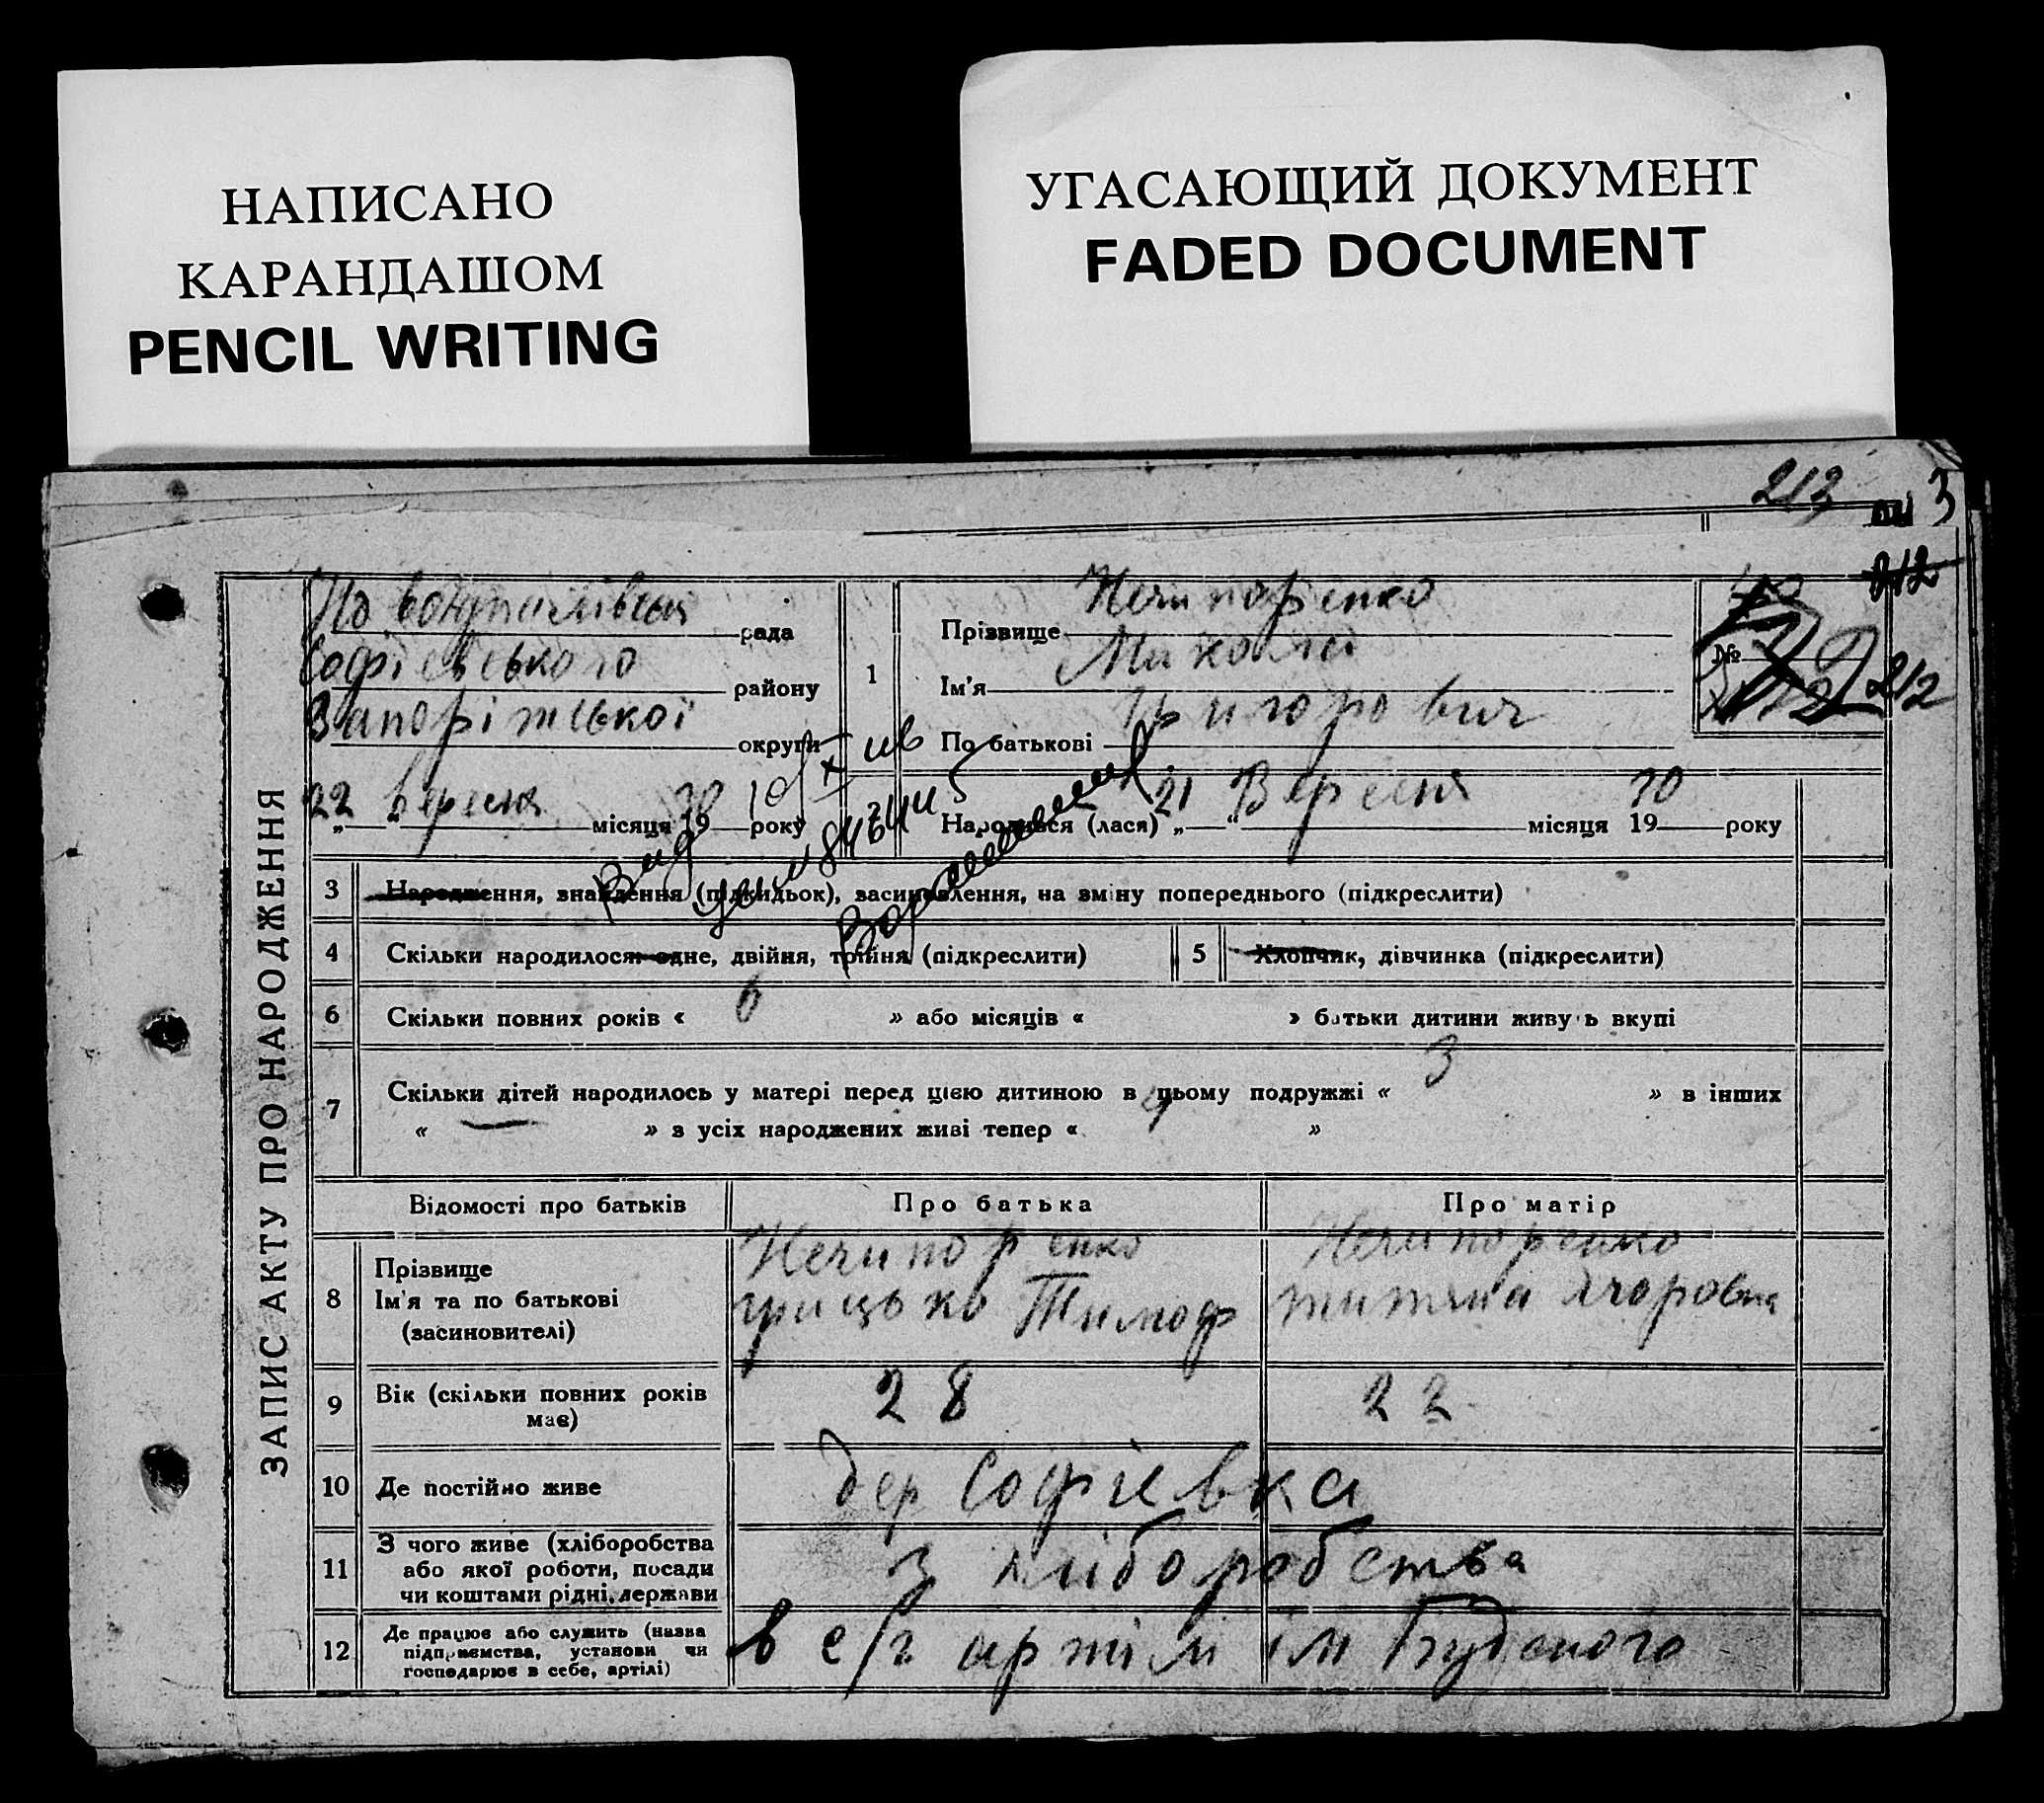 НАПИСАНО
КАРАНДАШОМ
PENCIL WRITING
УГАСАЮЩИЙ ДОКУМЕНТ
FADED DOCUMENT
213
3
212
ЗАПИС АКТУ ПРО НАРОДЖЕННЯ
рада
Софіевського району
Запоріжської округи
22 вересня місяця 1930 року
1
Прізвище Нечипоренко
Ім'я Микола
По батькові Григорович
№
212
Народився (лася) „21“ Вересня місяця 1930 року
3 Народження, знайдення (підкидьок), засиновлення, на зміну попереднього (підкреслити)
4 Скільки народилося: одне, двійня, трійня (підкреслити)
5 Хлопчик, дівчинка (підкреслити)
6 Скільки повних років « 6 » або місяців « » батьки дитини живуть вкупі
7 Скільки дітей народилось у матері перед цією дитиною в цьому подружжі « 3 » в інших
« — » з усіх народжених живі тепер « 4 »
Відомості про батьків
Про батька
Про матір
8 Прізвище
Ім'я та по батькові
(засиновителі)
Нечипоренко
грицько Тимоф
Нечипоренко
титяна Ягоровна
9 Вік (скільки повних років
має)
28
22
10 Де постійно живе
дер Софіевка
11 З чого живе (хліборобства
або якої роботи, посади
чи коштами рідні, держави
з хліборобства
12 Де працює або служить (назва
підприємства, установи чи
господарює в себе, артілі)
в с/г артілі ім Будьоного